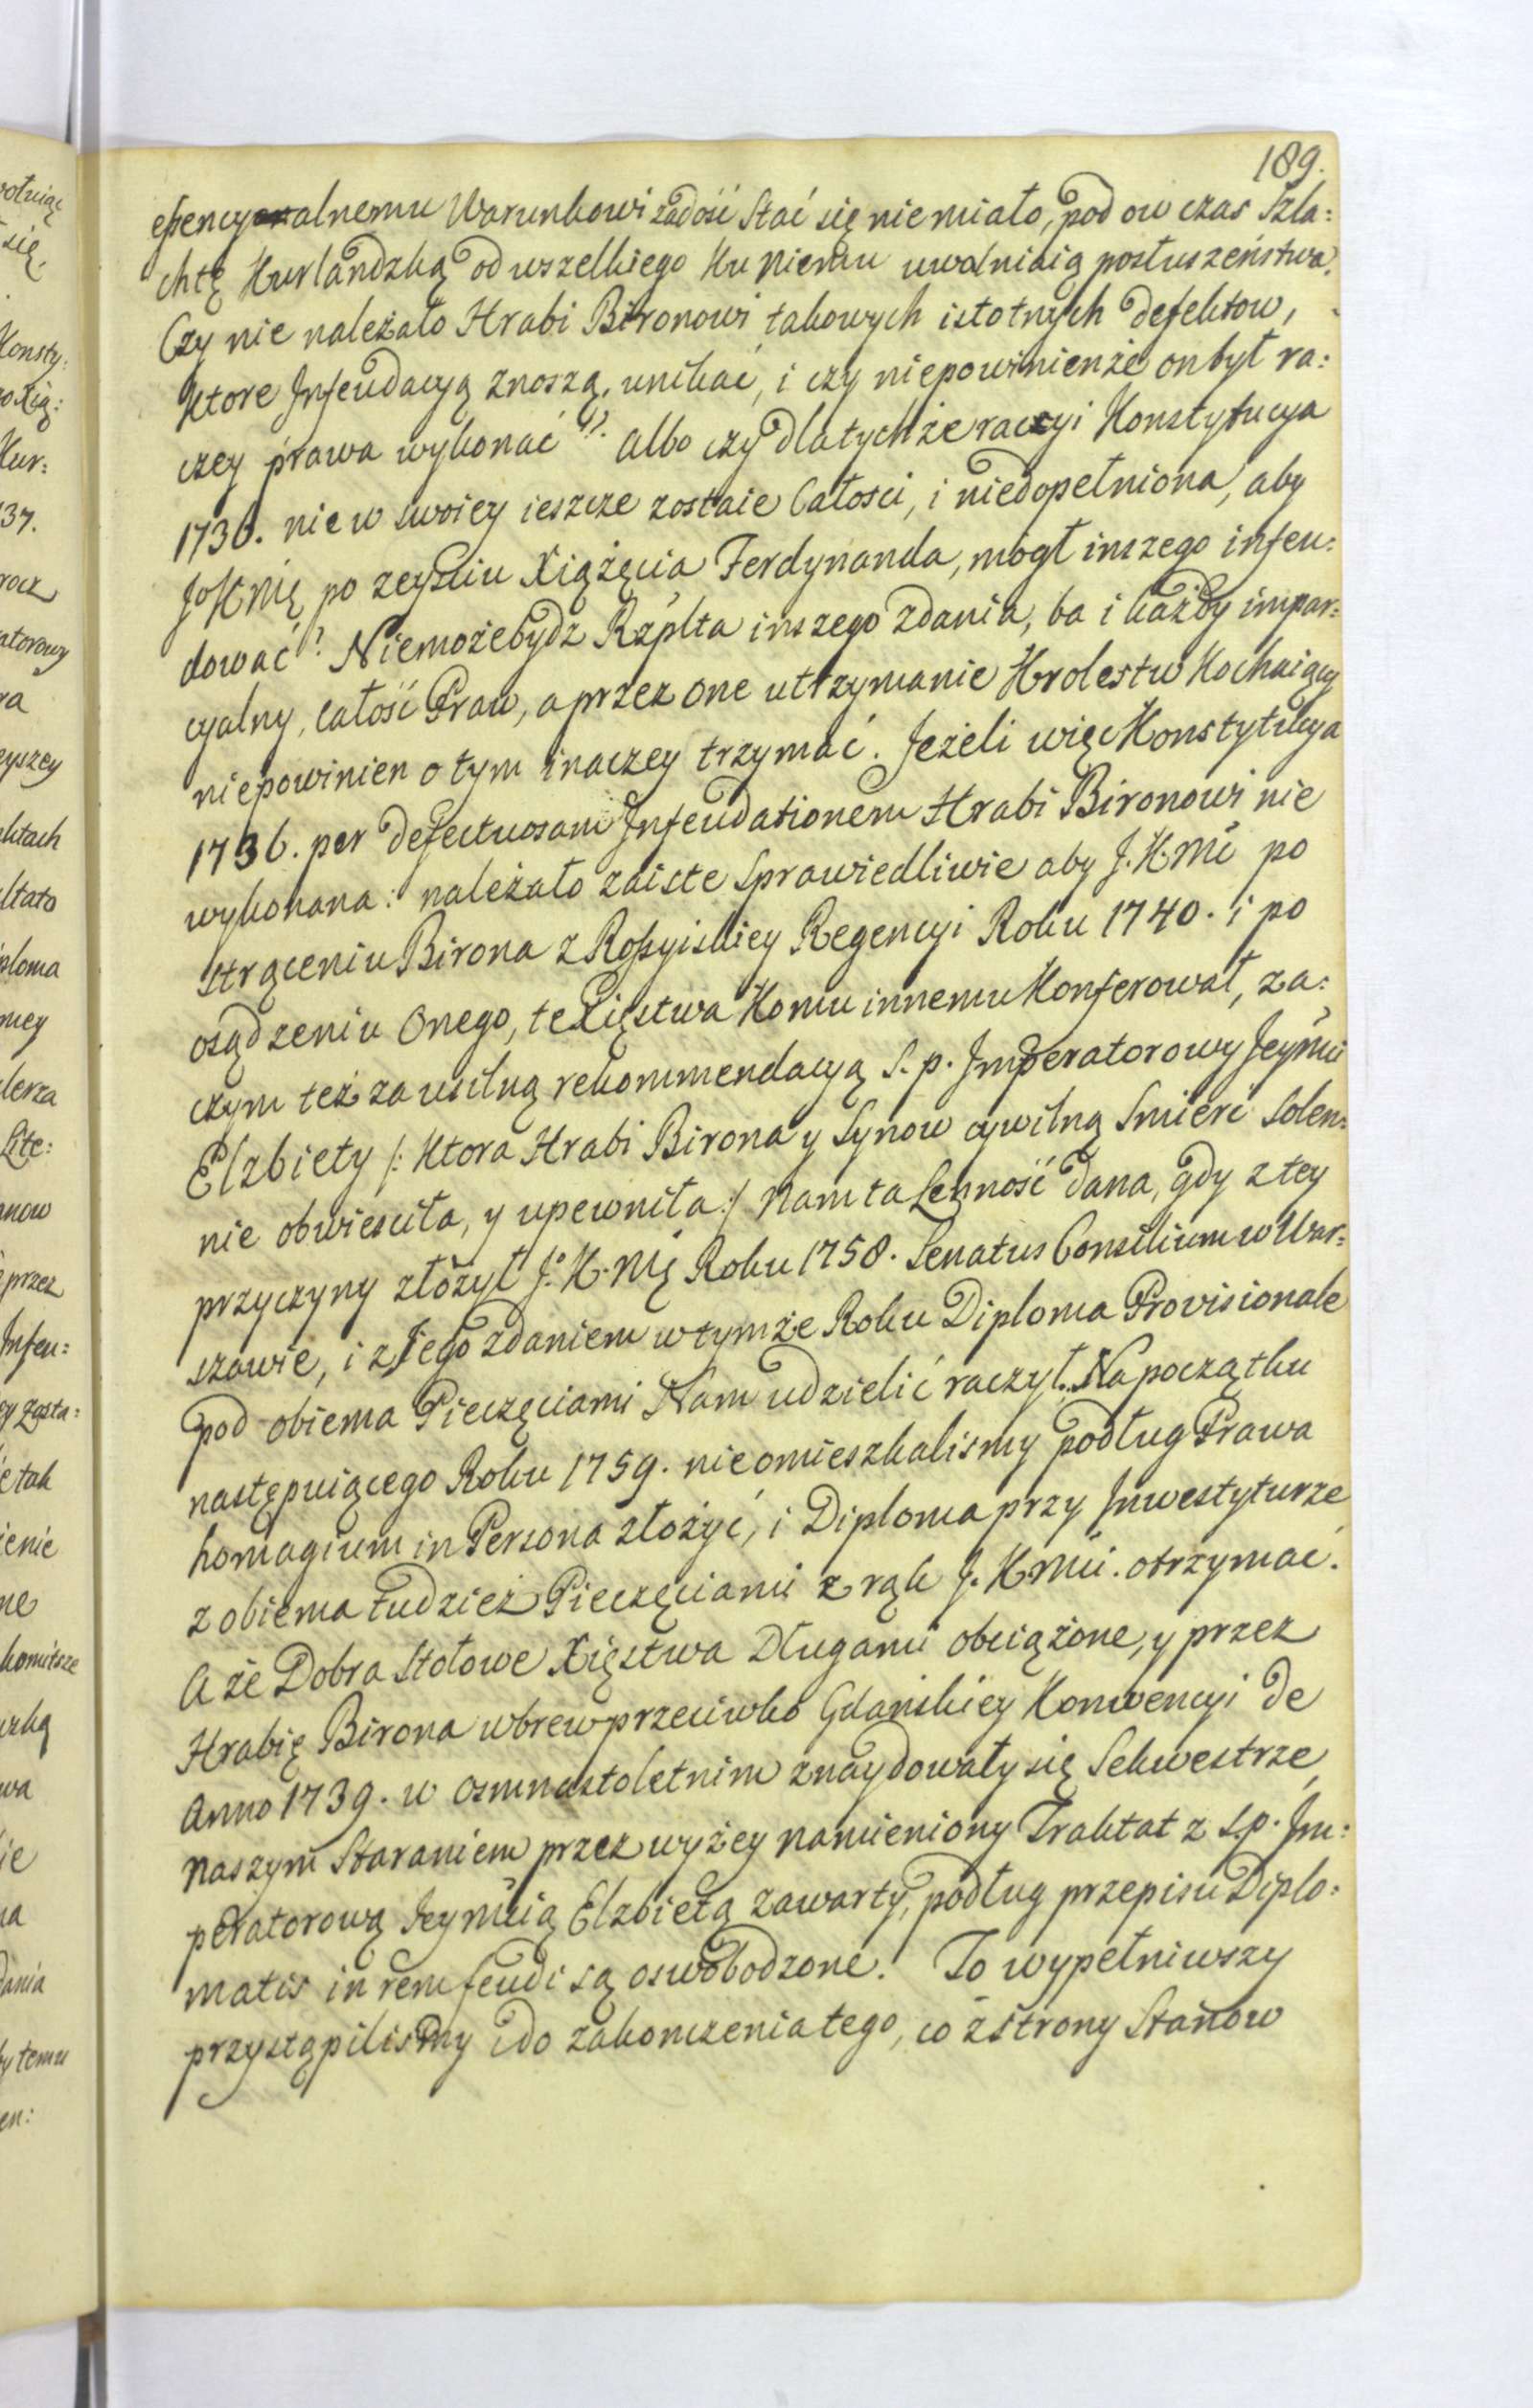 189.
essencyalnemu Warunkowi zadość Stać się nie miało, pod ow czas Szla:
chtę Kurlandzką od wszelkiego Ku Niemu uwalniaią posłuszeństwa.
Czy nie należało Hrabi Bironowi takowych istotnych defektow,
Ktore Infeudacyą znoszą, unikać, i czy niepowinienże on był ra:
czey prawa wykonać?. Albo czy dlatychże racyi Konstytucya
1736. nie w swoiey ieszcze zostaie Całosci, i niedopełniona, aby
JoKMć po zeysciu Xiążęcia Ferdynanda, mogł inszego infeu:
dować? Niemożebydź Rzplta inszego zdania, ba i każdy impar:
cyalny, całość Praw, a przez one utrzymanie Krolestw Kochaiący
niepowinien o tym inaczey trzymać. Jeżeli więc Konstytucya
1736. per defectuosam Infeudationem Hrabi Bironowi nie
wykonana: należało zaiste Sprawiedliwie aby J. K. Mć po
strąceniu Birona z Rossyiskiey Regencyi Roku 1740. i po
osądzeniu Onego, te Xięstwa Komu innemu Konferował, za:
czym też za usilną rekommendacyą S. p. Imperatorowy Jeymci
Elzbiety /: Ktora Hrabi Birona y Synow cywilną Smierć Solen:
nie obwiesciła, y upewniła :/ Nam ta Lenność dana, gdy z tey
przyczyny złożył J. K. Mć Roku 1758. Senatus Consilium w War:
szawie, i z Jego zdaniem w tymże Roku Diploma Provisionale
pod obiema Pieczęciami Nam udzielić raczył. Na początku
następuiącego Roku 1759. nieomieszkalismy podług Prawa
homagium in Persona złożyć, i Diploma przy Inwestyturze
z obiema tudzież Pieczęciami z rąk J. K Mci. otrzymać.
A że Dobra Stołowe Xięstwa Długami obciążone, y przez
Hrabię Birona wbrew przeciwko Gdańskiey Konwencyi de
Anno 1739. w osmnastoletnim znaydowały się Sekwestrze,
naszym Staraniem przez wyżey namieniony Traktat z S.p. Im:
peratorową Jeymcią Elzbietą zawarty, podług przepisu Diplo:
matis in rem feudi są oswobodzone. To wypełniwszy
przystąpilismy do zakonczenia tego, co z strony Stanow